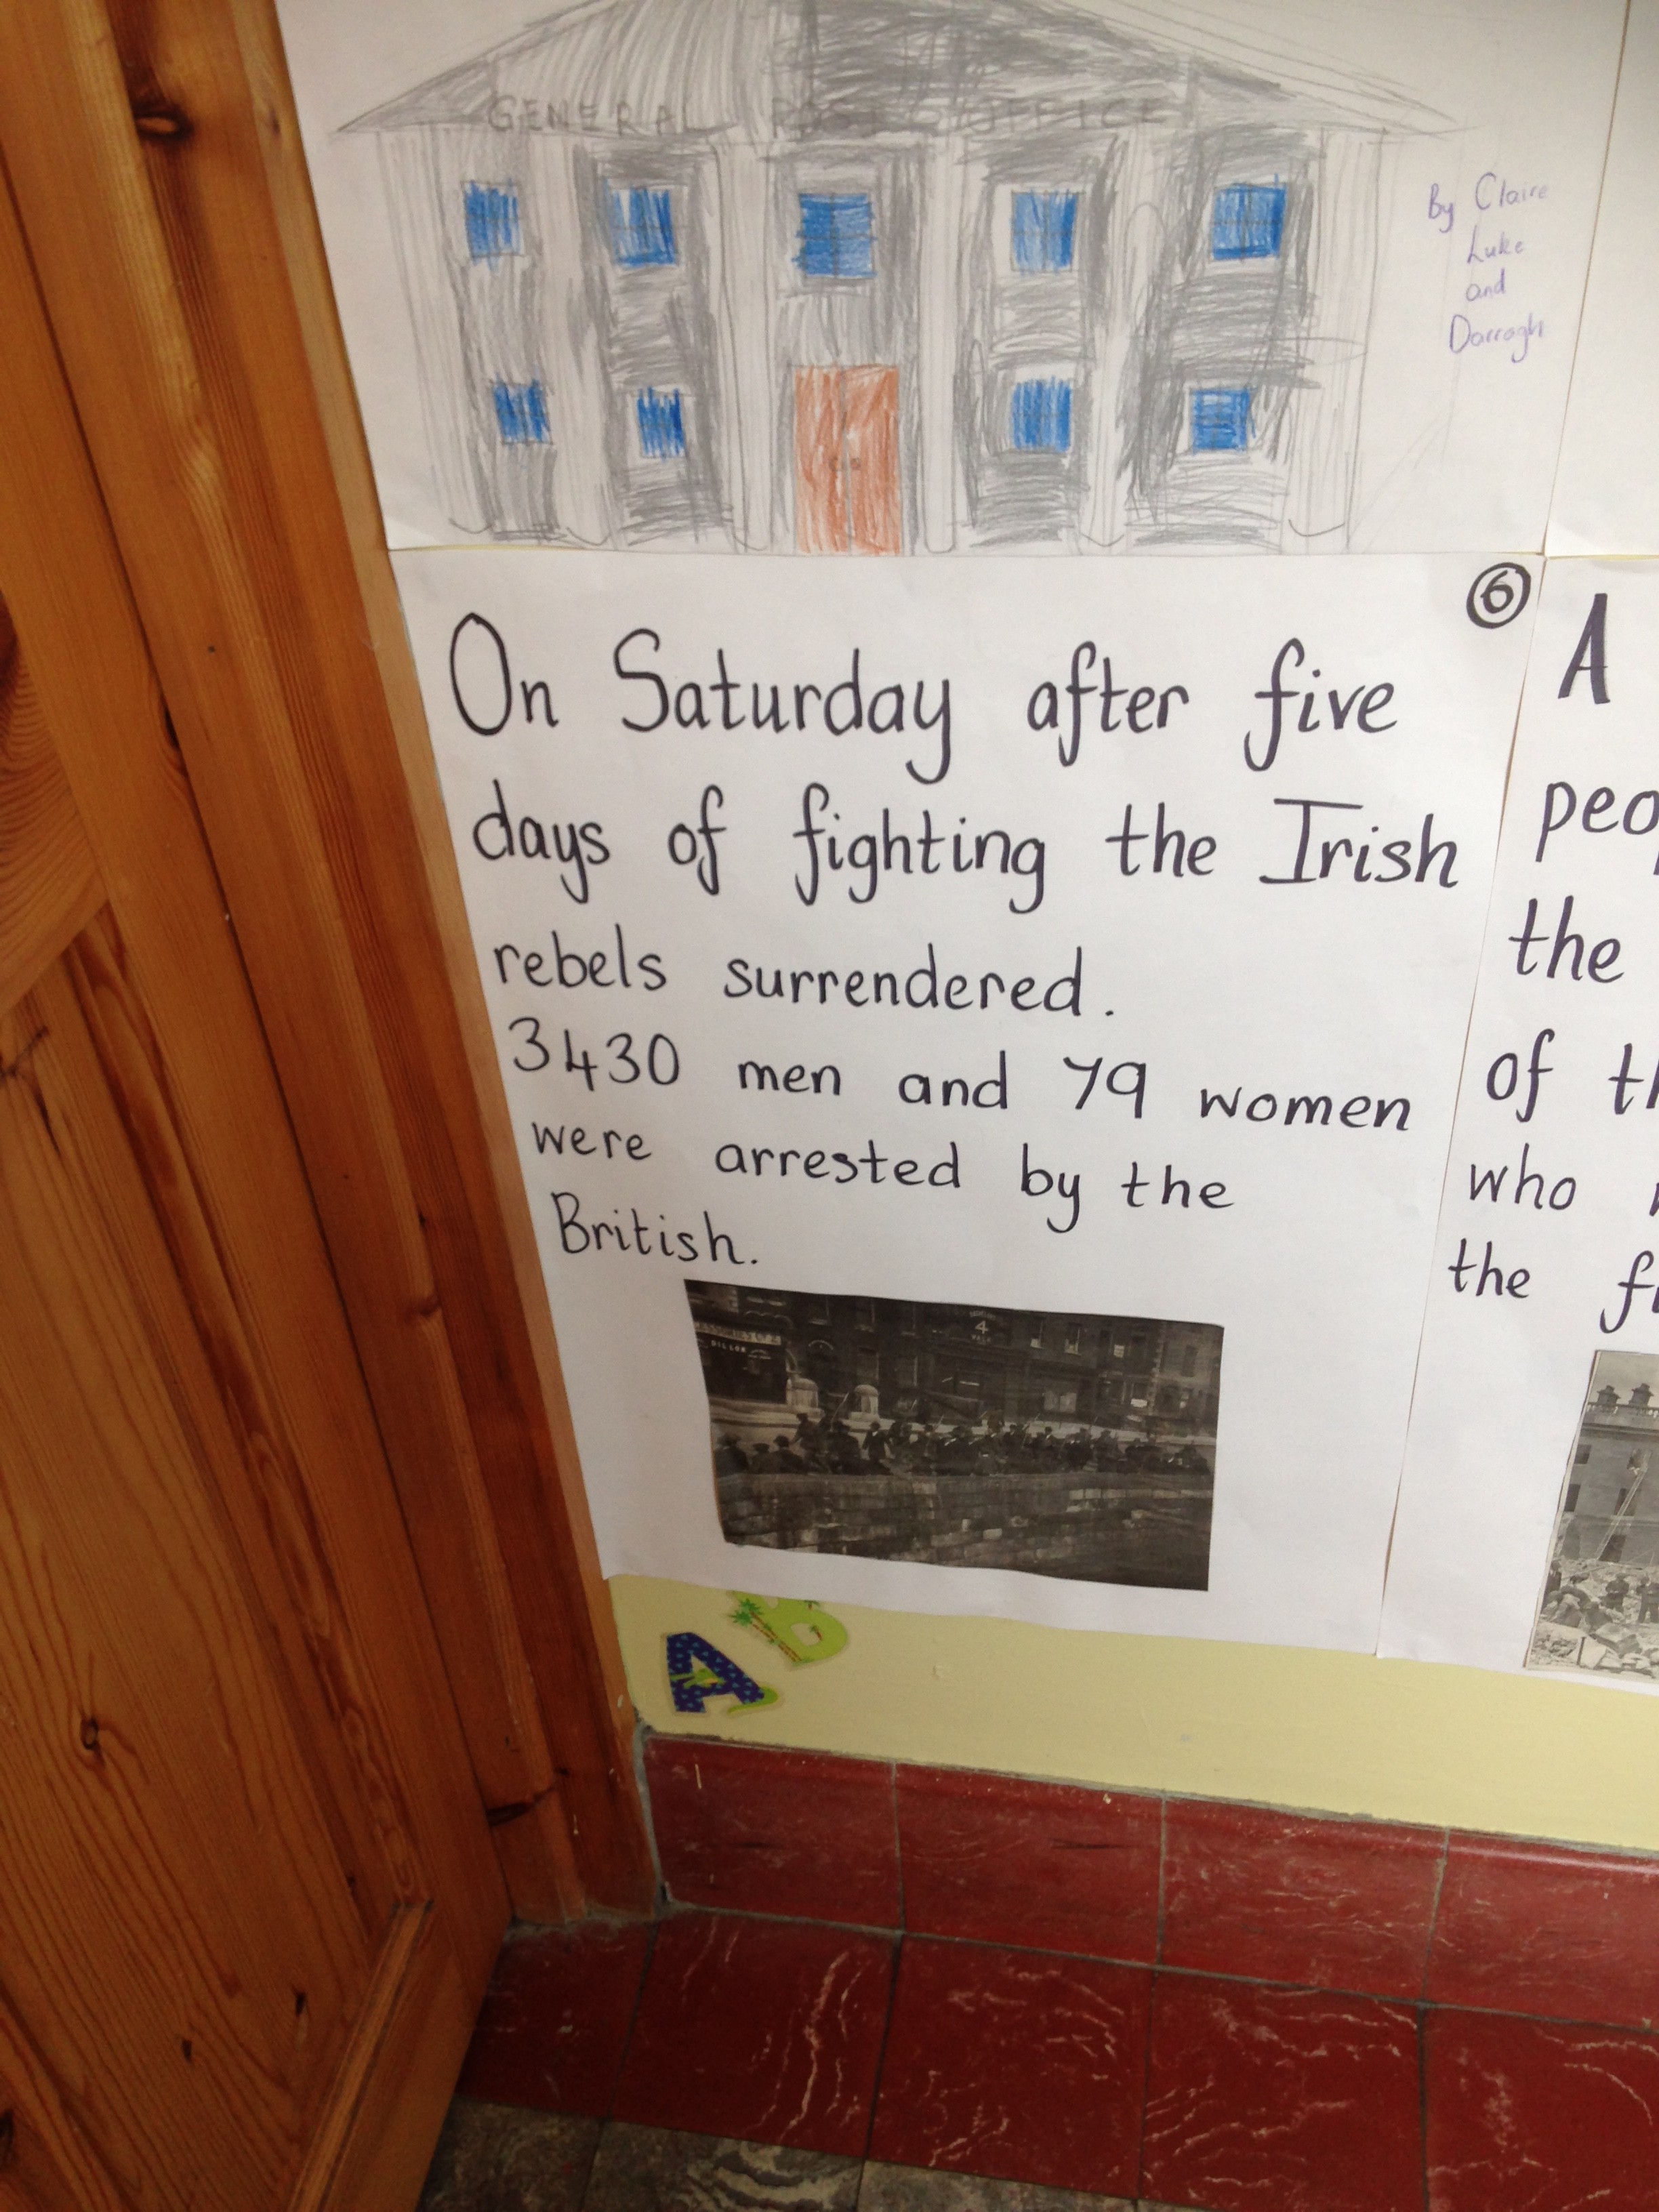 GENERAL POST OFFICE
By Claire
Luke
and
Darragh
6
On Saturday after five
days of fighting the Irish
rebels surrendered.
3430 men and 79 women
were arrested by the
British.
4
A
the
of
who
the
A
B